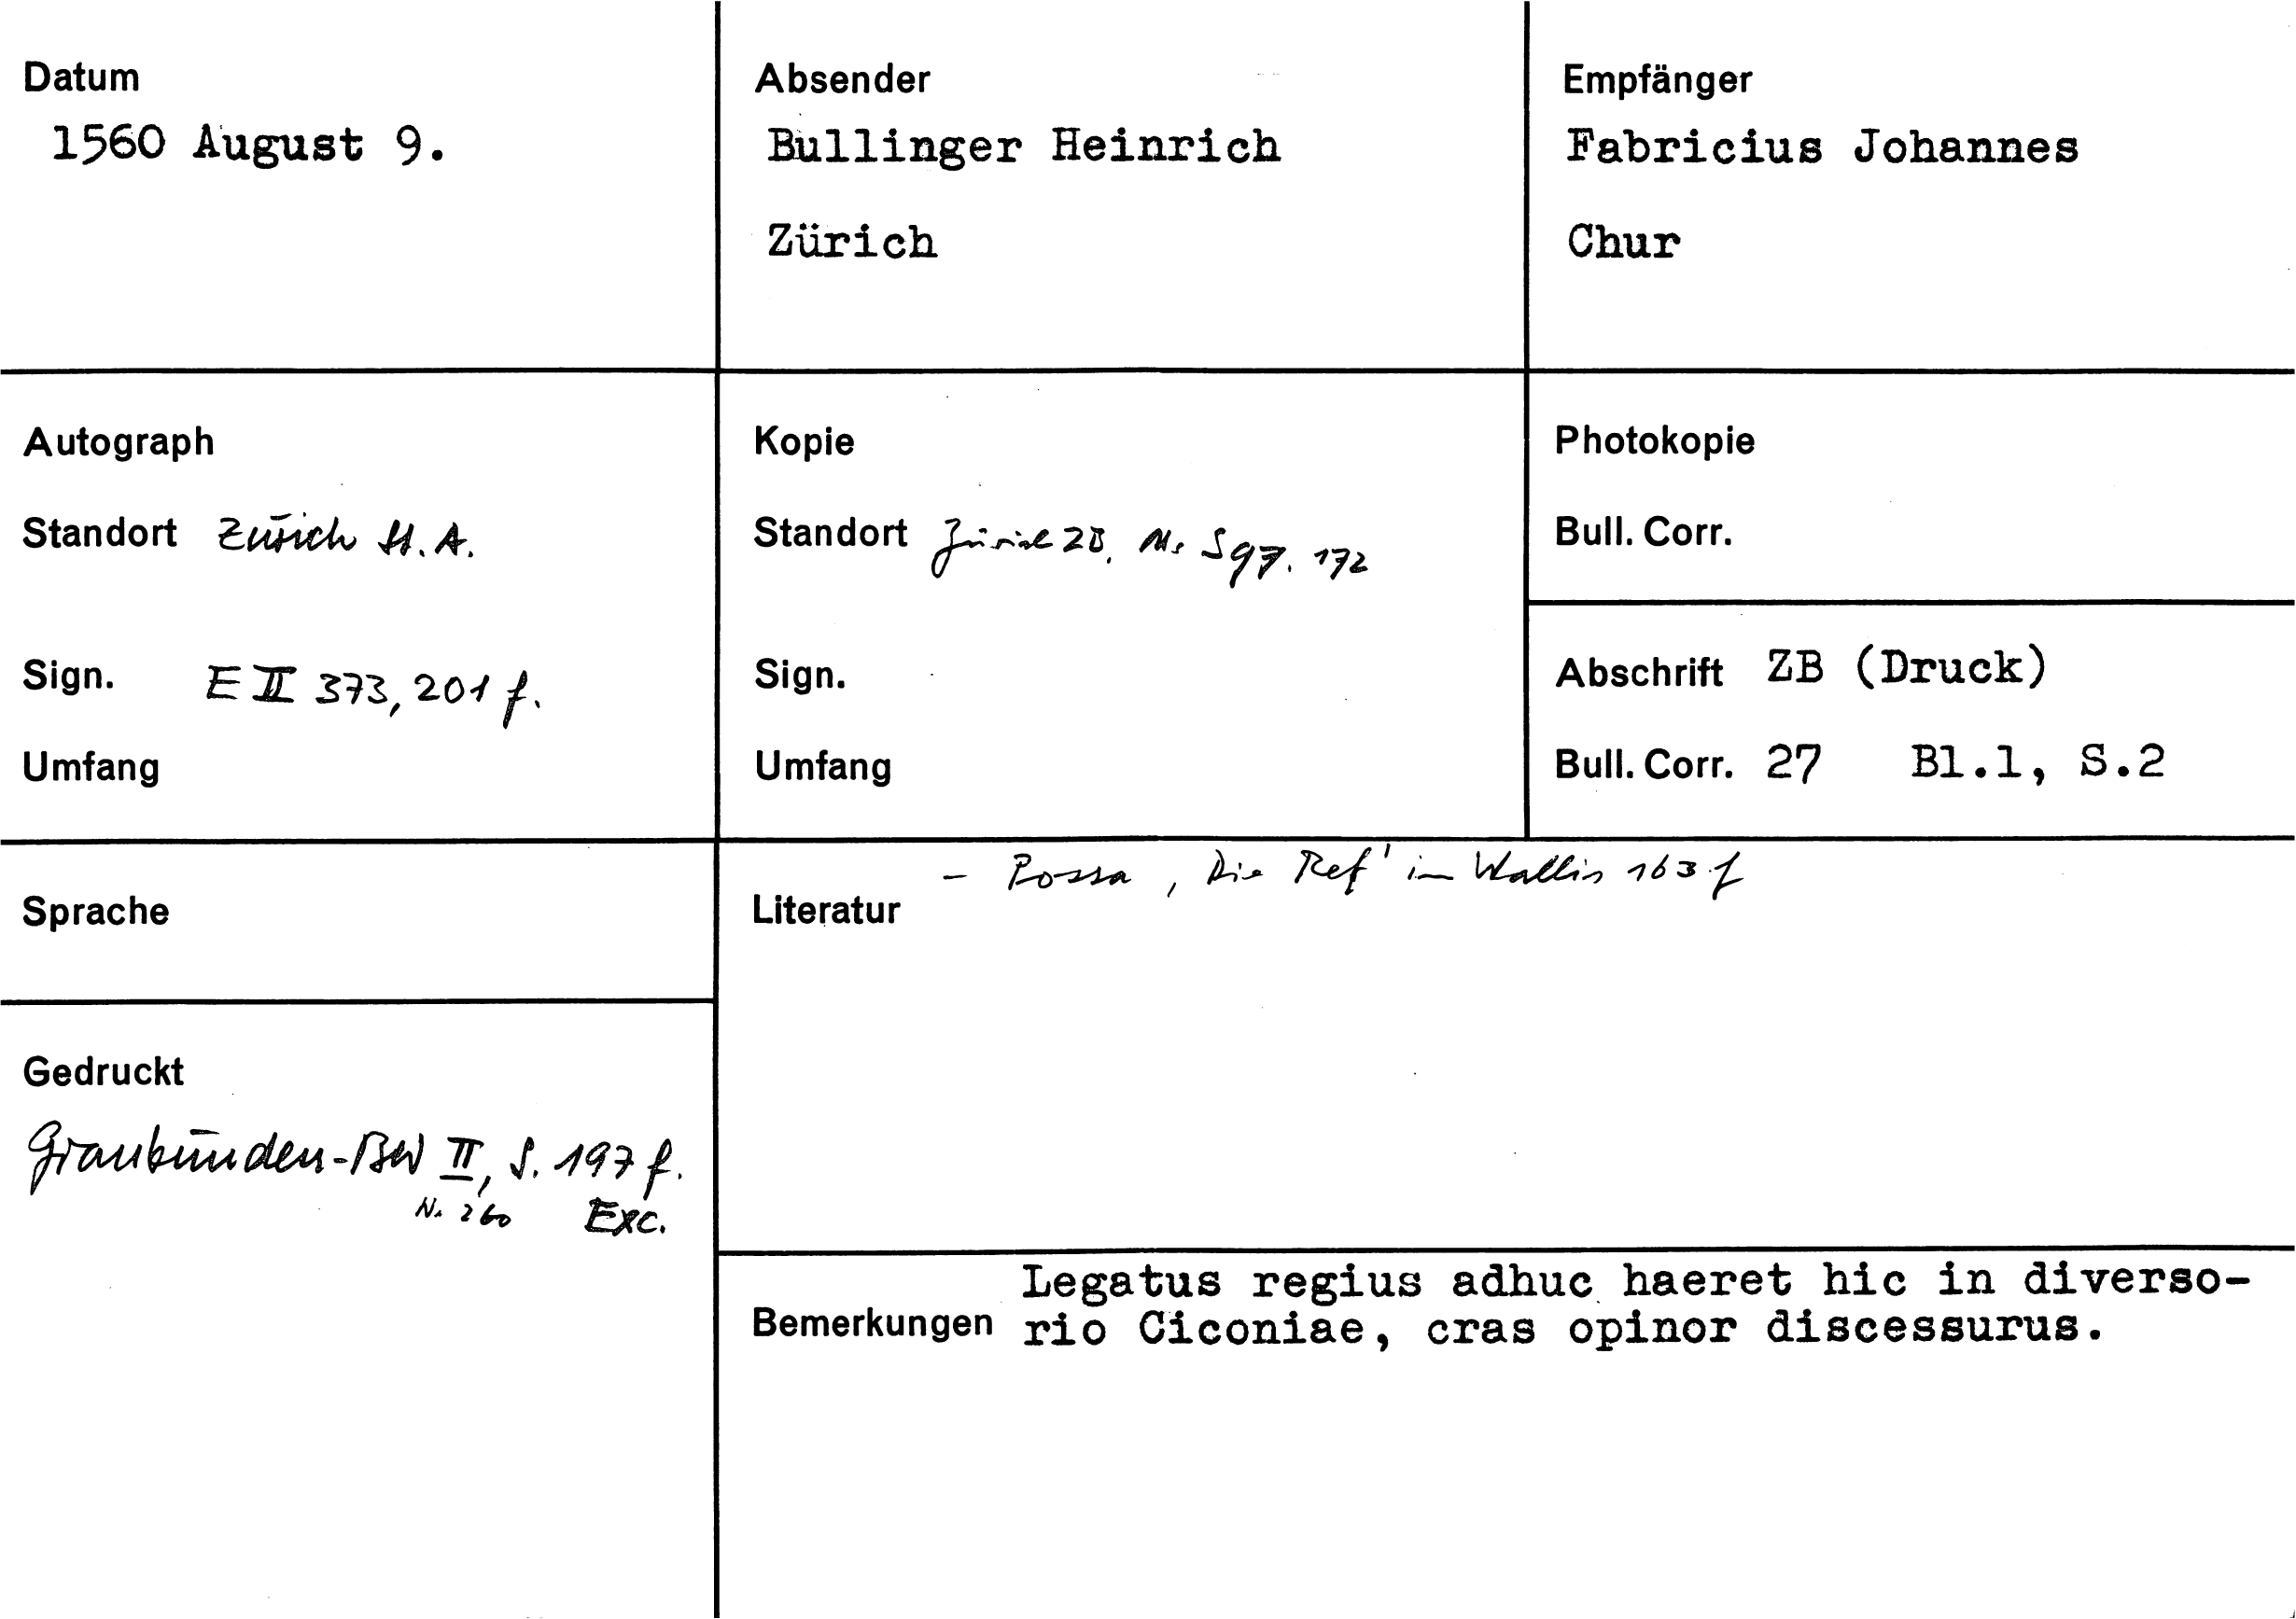 Datum
1560 August 9.
Absender
Bullinger Heinrich
Zürich
Empfänger
Fabricius Johannes
Chur
Autograph
Standort Zürich St. A.
Sign. E II 373, 201 f.
Umfang
Kopie
Standort Zürich ZB, Ms S 97. 172
Sign.
Umfang
Photokopie
Bull. Corr.
Abschrift ZB (Druck)
Bull. Corr. 27 Bl.1, S.2
Sprache
Gedruckt
Graubünden-BW II, S. 197 f.
Nr 260 Exc.
Literatur - Possa, Die Ref' im Wallis 163 f
Bemerkungen Legatus regius adhuc haeret hic in diverso-
rio Ciconiae, cras opinor discessurus.